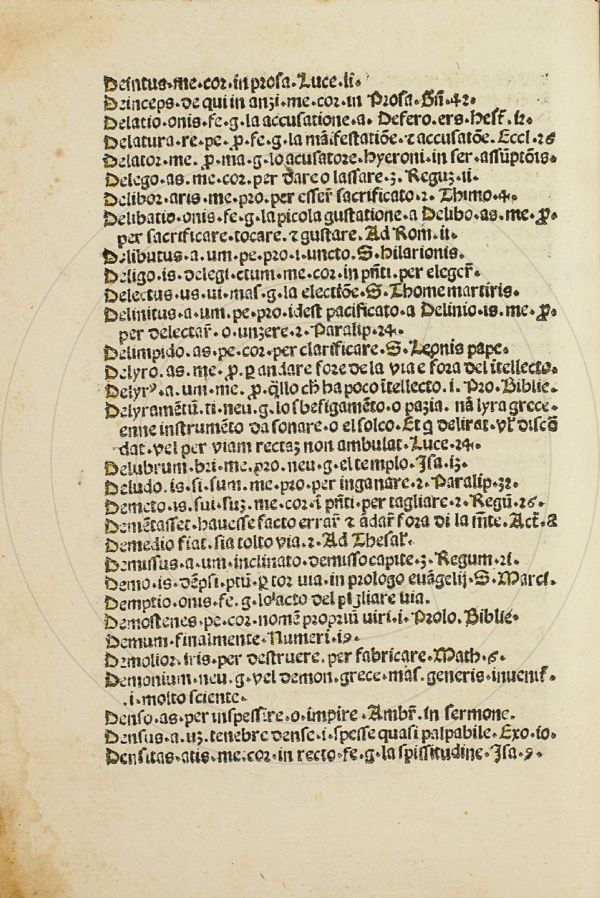 Deintus.me.cor.in prosa.Luce.ii.
Deinceps.de qui in anzi.me.cor.in Prosa.Gñ.42.
Delatio.onis.fe.g.la accusatione.a. Defero.ers.hest.12.
Delatura.re.pe.p̄.fe.g.la mãifestatiõe.⁊ accusatõe.Eccl.26
Delator.me.p̄.ma.g.lo acusatore.hyeroni.in ser.assũptõis.
Delego.as.me.cor.per dare o lassare.3.Reguʒ.ii.
Delibor.aris.me.pro.per esser sacrificato.2.Thimo.4.
Delibatio.onis.fe.g.la picola gustatione.a Delibo.as.me.p̄.
per sacrificare.tocare.⁊ gustare.Ad Rom.ii.
Delibutus.a.um.pe.pro.i.uncto.S.hilarionis.
Deligo.is.delegi.ctum.me.cor.in pñti.per eleger.
Delectus.us.ui.mas.g.la electiõe.S.Thome martiris.
Delinitus.a.um.pe.pro.idest pacificato.a Delinio.is.me.p̄.
per delectar.o.unzere.2.Paralip.24.
Delimpido.as.pe.cor.per clarificare.S.Leonis pape.
Delyro.as.me.p̄.ꝑ andare fore de la via e fora del ĩtellecto.
Delyrꝰ.a.um.me.p̄.q̃llo cħ ha poco ĩtellecto.i.Pro.Biblie.
Delyramẽtũ.ti.neu.g.lo sbefigamẽto.o pazia. nã lyra grece.
enne instrumẽto da sonare.o el solco.Et q delirat.vꝉ discõ
dat.vel per viam rectaʒ non ambulat.Luce.24.
Delubrum.bri.me.pro.neu.g.el templo.Isa.13.
Deludo.is.si.sum.me.pro.per inganare.2.Paralip.32.
Demeto.is.sui.suʒ.me.cor.ĩ pñti.per tagliare.2.Regũ.26.
Demẽtasset.havesse facto errar ⁊ ãdar fora di la mẽte.Act.8
Demedio fiat.sia tolto via.2.Ad Thesal.
Demissus.a.um.inclinato.demisso capite.3.Regum.21.
Demo.is.dẽpsi.ptũ.ꝑ tor via.in prologo evãgelij.S.Marci.
Demptio.onis.fe.g.lo acto del pigliare via.
Demostenes.pe.cor.nomẽ propriũ uiri.i.Prolo.Biblie.
Demum.finalmente.Numeri.19.
Demolior.iris.per destruere.per fabricare.Math.6.
Demonium.neu.g.vel demon.grece.mas.generis.invenit.
.i.molto sciente.
Denso.as.per inspessire.o.impire.Ambr.in sermone.
Densus.a.uʒ.tenebre dense.i.spesse quasi palpabile.Exo.10.
Densitas.atis.me.cor.in recto.fe.g.la spissitudine.Isa.9.